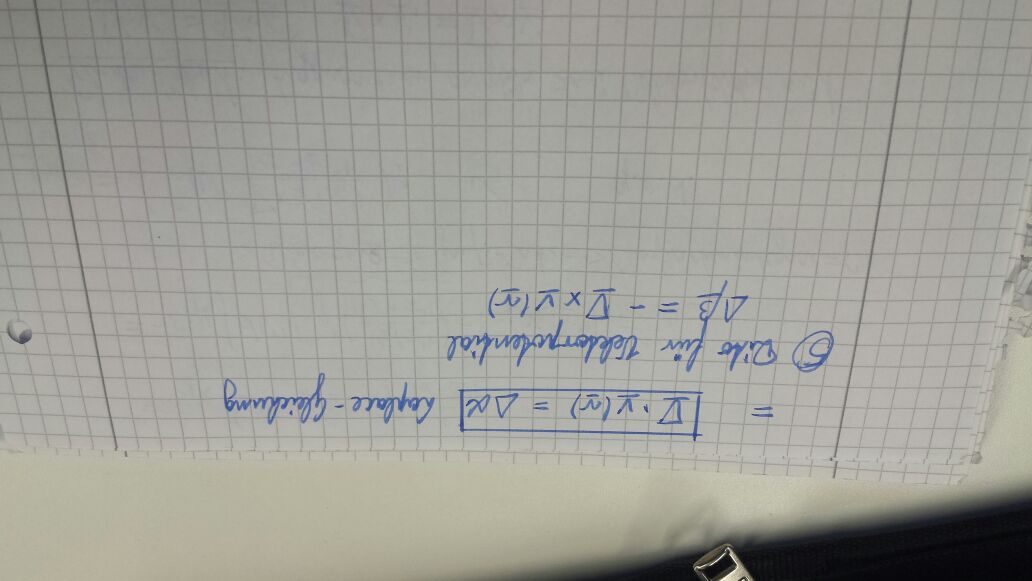 = ∇·v(r) = Δα Laplace-Gleichung
⑤ Dito für Vektorpotential
Δβ = - ∇ × v(r)